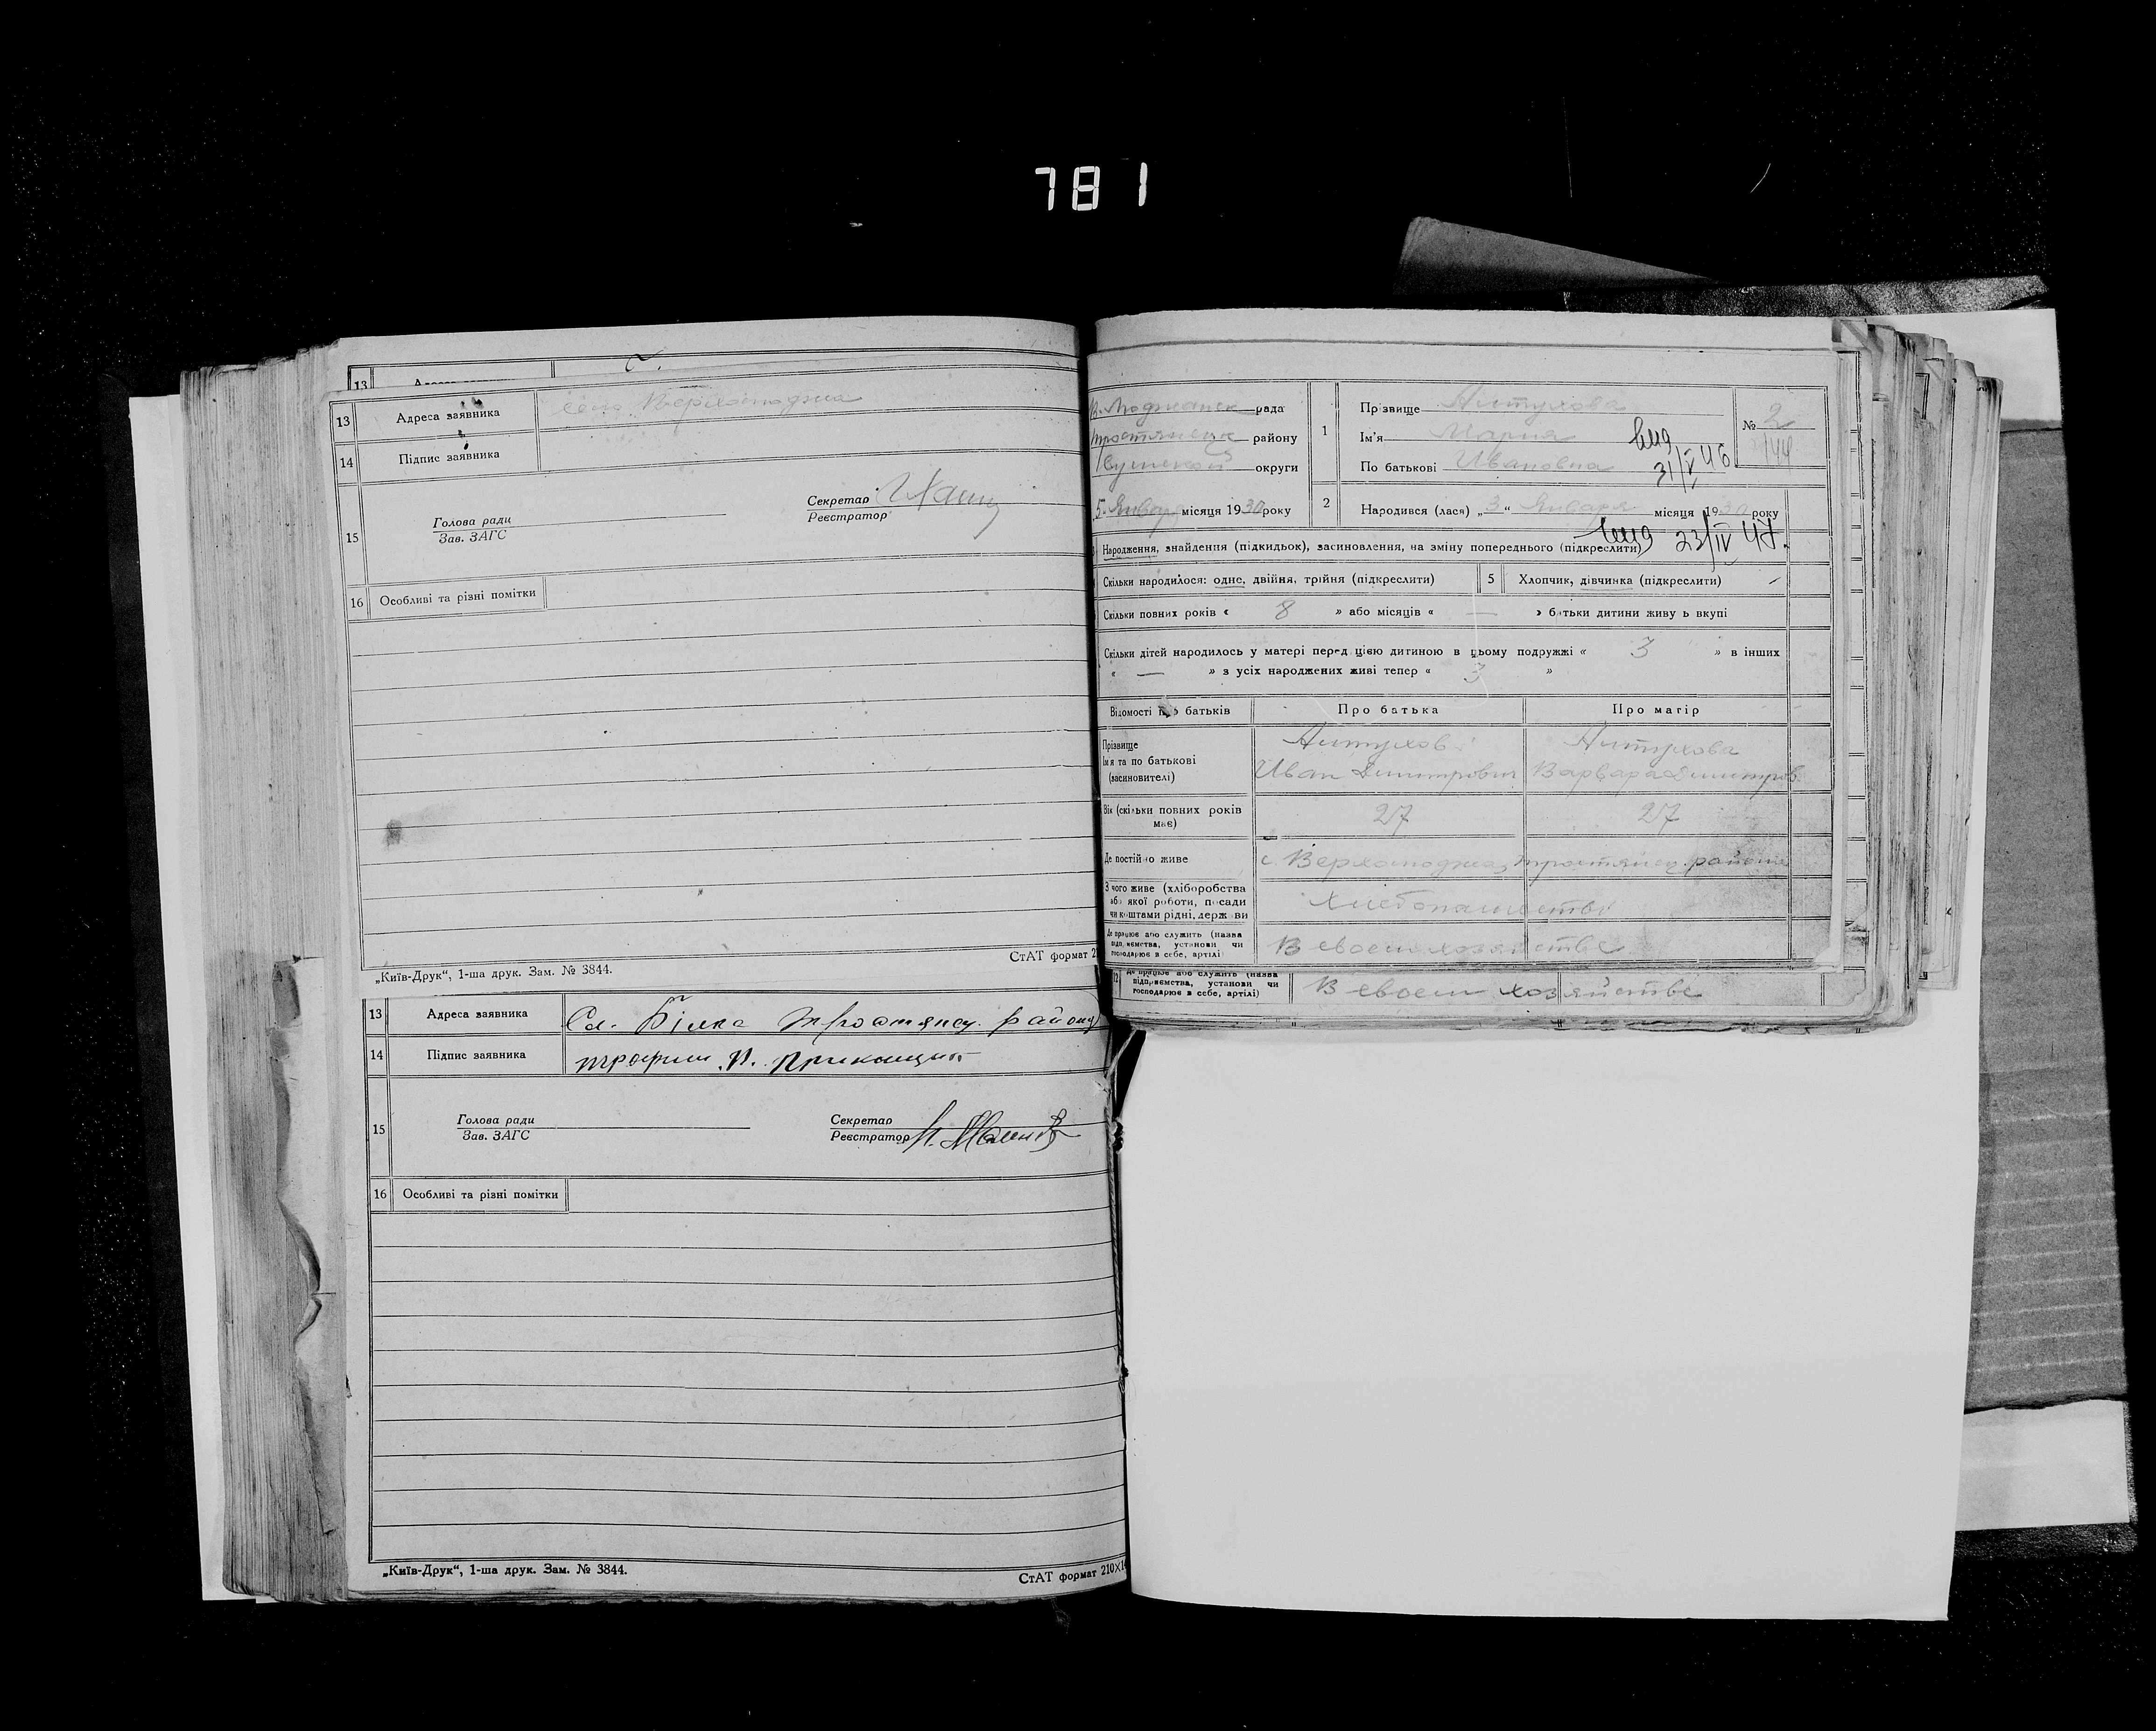 781
13 Адреса заявника село Верхолюджа
14 Підпис заявника
15 Голова ради
Зав. ЗАГС
Секретар
Реєстратор
16 Особливі та різні помітки
„Київ-Друк“, 1-ша друк. Зам. № 3844.
СтАТ формат 2
13 Адреса заявника Сл. Білка Тростянец. району
14 Підпис заявника Трофим П. Приказщик
15 Голова ради
Зав. ЗАГС
Секретар
Реєстратор
16 Особливі та різні помітки
„Київ-Друк“, 1-ша друк. Зам. № 3844.
СтАТ формат 210×14
рада
району
Сумской округи
5 Январ місяця 1930 року
1 Прізвище Антухова
Ім'я Мария
По батькові Ивановна
вид 31/V 46
№ 2
2 Народився (лася) „3“ Января місяця 1930 року
вид 23/IV 47.
Народження, знайдення (підкидьок), засиновлення, на зміну попереднього (підкреслити)
Скільки народилося: одне, двійня, трійня (підкреслити)
5 Хлопчик, дівчинка (підкреслити)
Скільки повних років « 8 » або місяців « — » батьки дитини живуть вкупі
Скільки дітей народилось у матері перед цією дитиною в цьому подружжі « 3 » в інших
« — » з усіх народжених живі тепер « 3 »
Відомості про батьків Про батька Про матір
Прізвище
Ім'я та по батькові
(засиновителі)
Антухов Антухова
Иван Димитрович Варвара Димитров.
Вік (скільки повних років має) 27 27
Де постійно живе с. Верхолюджа, Тростянец. района
З чого живе (хліборобства
або якої роботи, посади
чи коштами рідні, держави
Хлебопашество
Де працює або служить (назва
підприємства, установи чи
господарює в себе, артілі)
В своем хозяйстве
12 Де працює або служить (назва
підприємства, установи чи
господарює в себе, артілі)
В своем хозяйстве